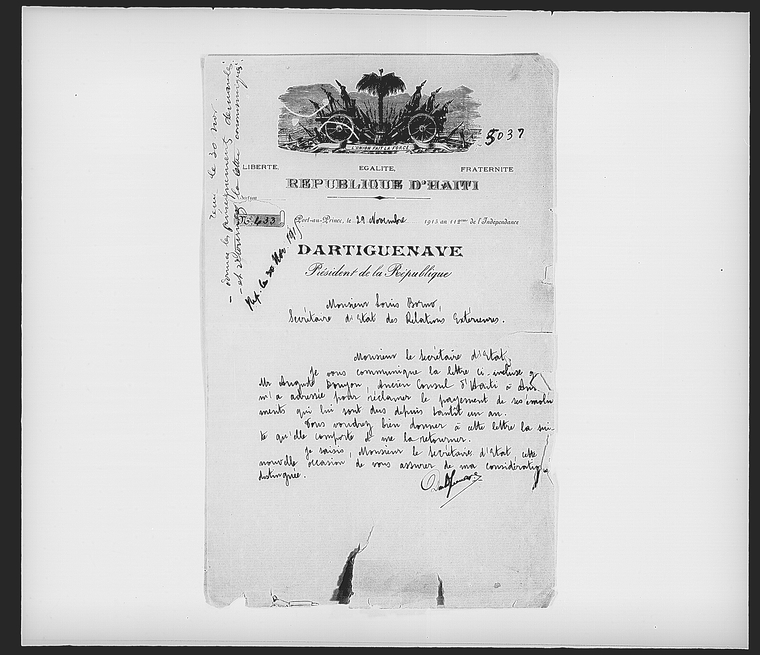 reçu le 30 Nov.
- donner les renseignements demandés
- et retourner la lettre communiquée
L'UNION FAIT LA FORCE
5037
LIBERTE, EGALITE, FRATERNITE
REPUBLIQUE D'HAITI
Section
633
Port-au-Prince, le 29 Novembre 1915 an 112ème de l'Indépendance
Rep. le 30 Nov. 1915
DARTIGUENAVE
Président de la République
Monsieur Louis Borno,
Secrétaire d'Etat des Relations Extérieures.
Monsieur le Secrétaire d'Etat,
Je vous communique la lettre ci-incluse q
Mr Auguste Bonjon, Ancien Consul d'Haïti à
m'a adressée pour réclamer le payement de ses émolu
ments qui lui sont dus depuis tantôt un an.
Vous voudrez bien donner à cette lettre la sui-
te qu'elle comporte et me la retourner.
Je saisis, Monsieur le Secrétaire d'Etat, cette
nouvelle occasion de vous assurer de ma considération
distinguée.